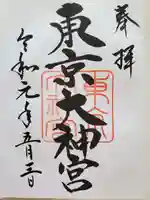 奉拝
東京大神宮
令和元年五月三日